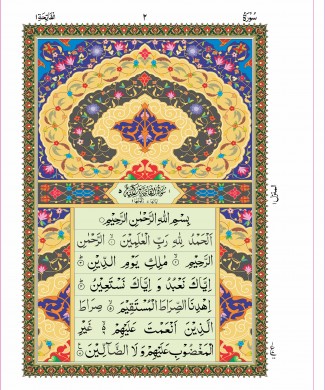 سُوْرَةُ ٢ اَلْفَاتِحَة ١
بِسْمِ اللهِ الرَّحْمٰنِ الرَّحِيْمِ
اَلْحَمْدُ لِلّٰهِ رَبِّ الْعٰلَمِيْنَ ۝١ الرَّحْمٰنِ
الرَّحِيْمِ ۝٢ مٰلِكِ يَوْمِ الدِّيْنِ ۝٣
اِيَّاكَ نَعْبُدُ وَ اِيَّاكَ نَسْتَعِيْنُ ۝٤
اِهْدِنَا الصِّرَاطَ الْمُسْتَقِيْمَ ۝٥ صِرَاطَ
الَّذِيْنَ اَنْعَمْتَ عَلَيْهِمْ ۝٦ غَيْرِ
الْمَغْضُوْبِ عَلَيْهِمْ وَ لَا الضَّآلِّيْنَ ۝٧